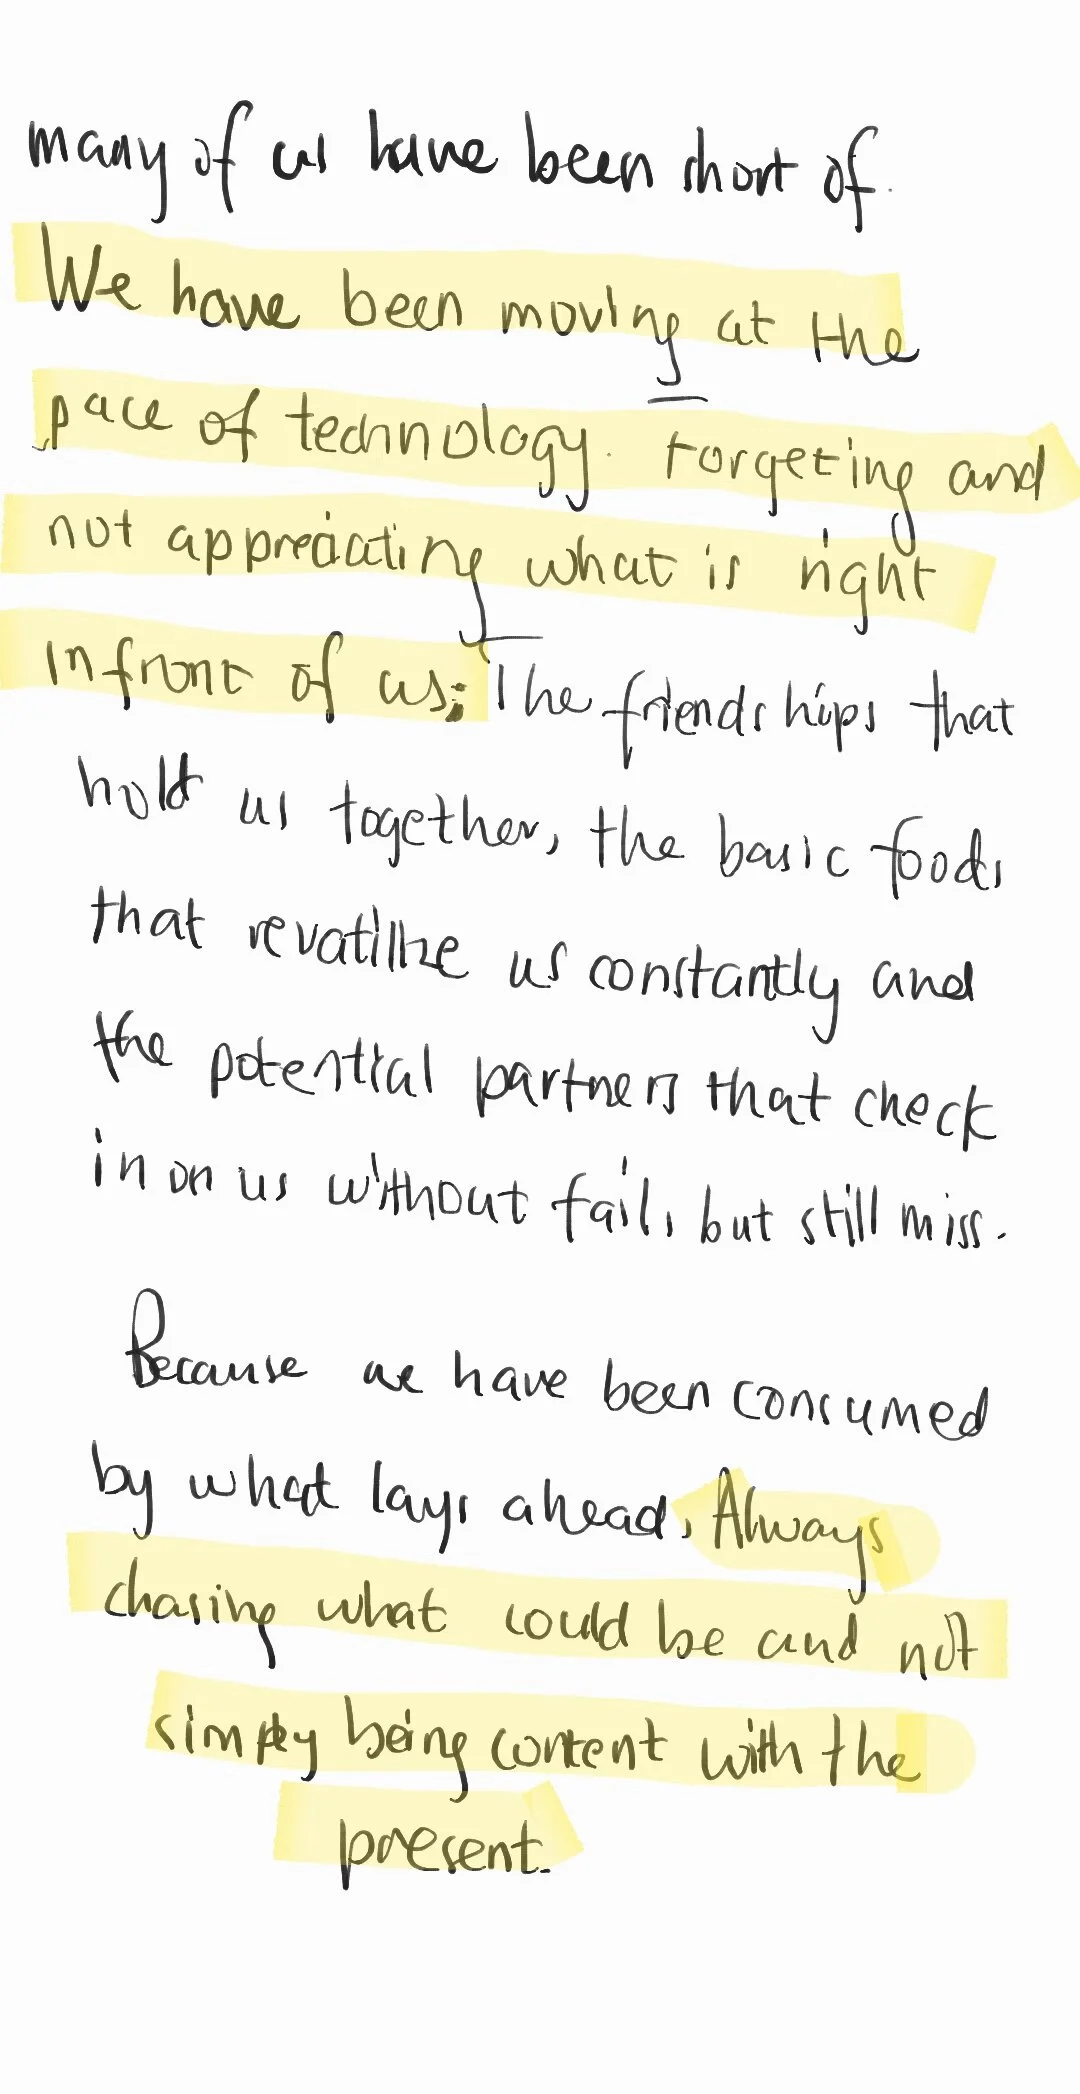 many of us have been short of.
We have been moving at the
pace of technology. Forgeting and
not appreciating what is right
infront of us; The friendships that
hold us together, the basic foods
that revatilize us constantly and
the potential partners that check
in on us without fail, but still miss.
Because we have been consumed
by what lays ahead, Always
chasing what could be and not
simply being content with the
present.